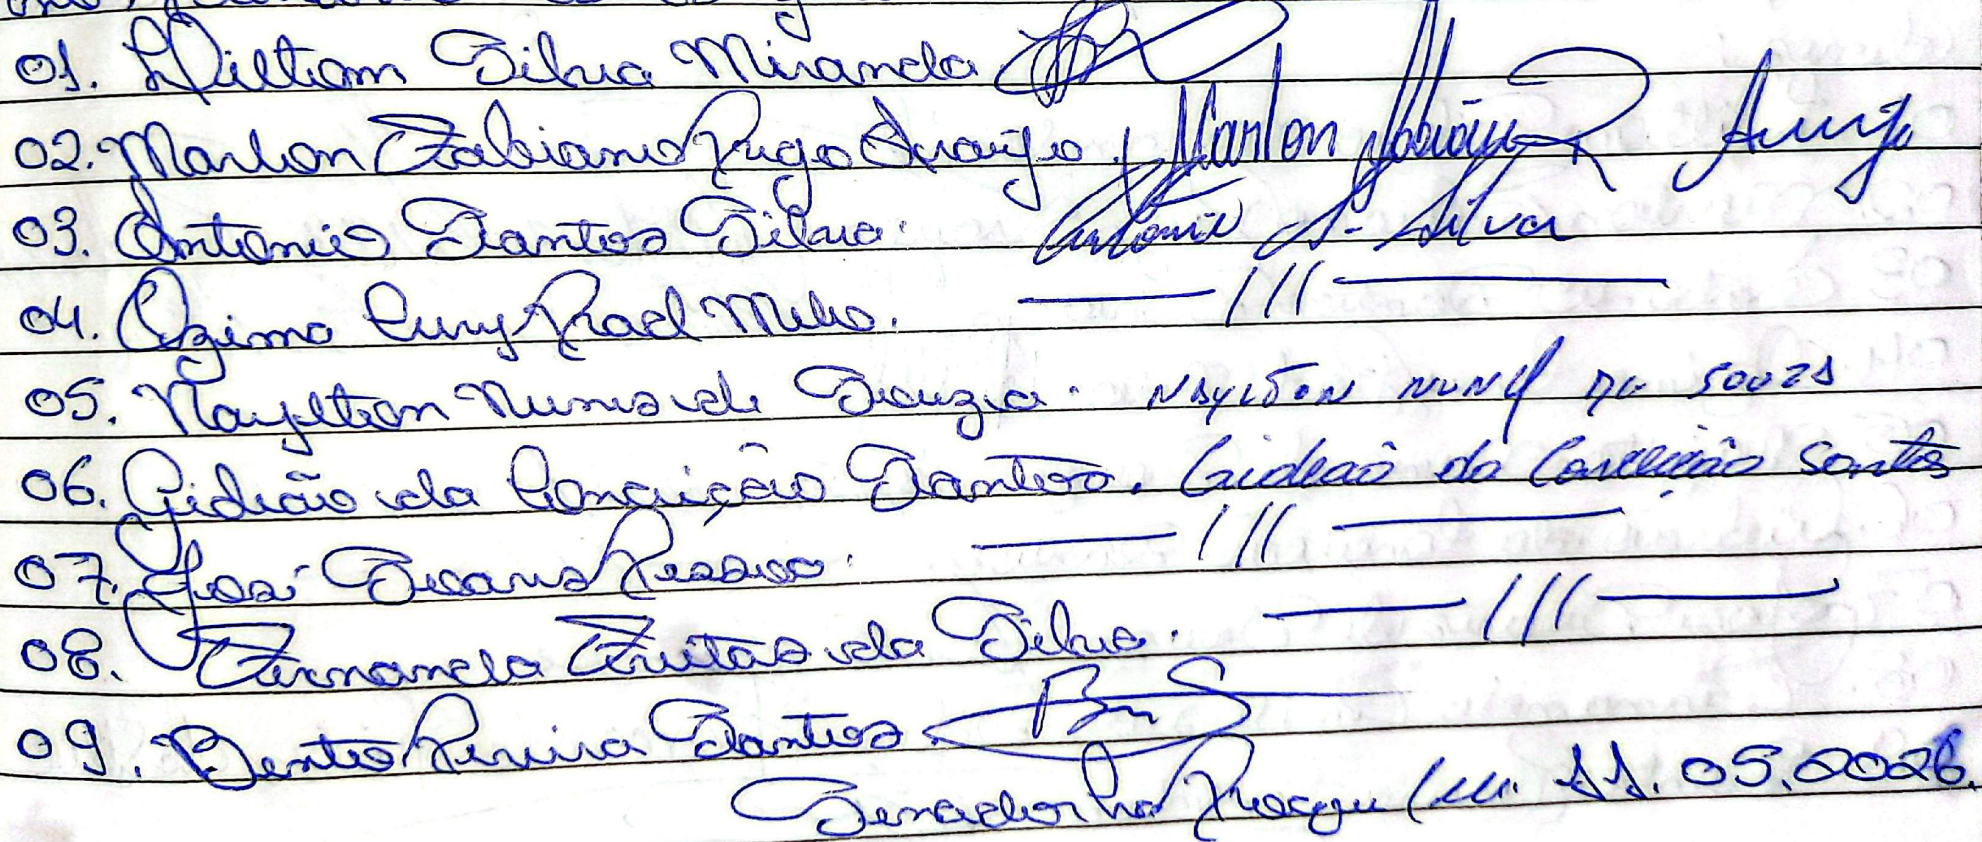 01. Wiltiam Silva Miranda
02. Marlon Fabiano Rego Araújo. Marlon Fabiano R Araújo
03. Antonio Santos Silva. Antonio S. Silva
04. Ozimo Cury Rael Melo. ——— /// ———
05. Nayltton Nunes de Souza. NAYLTON NUNES DE SOUZA
06. Gideão da Conceição Santos. Gideaõ da Conceição Santos
07. José Soares Pessoa. ——— /// ———
08. Fernanda Freitas da Silva. ——— /// ———
09. Bento Pereira Santos.
Senador La Rocque 11.05.2026.